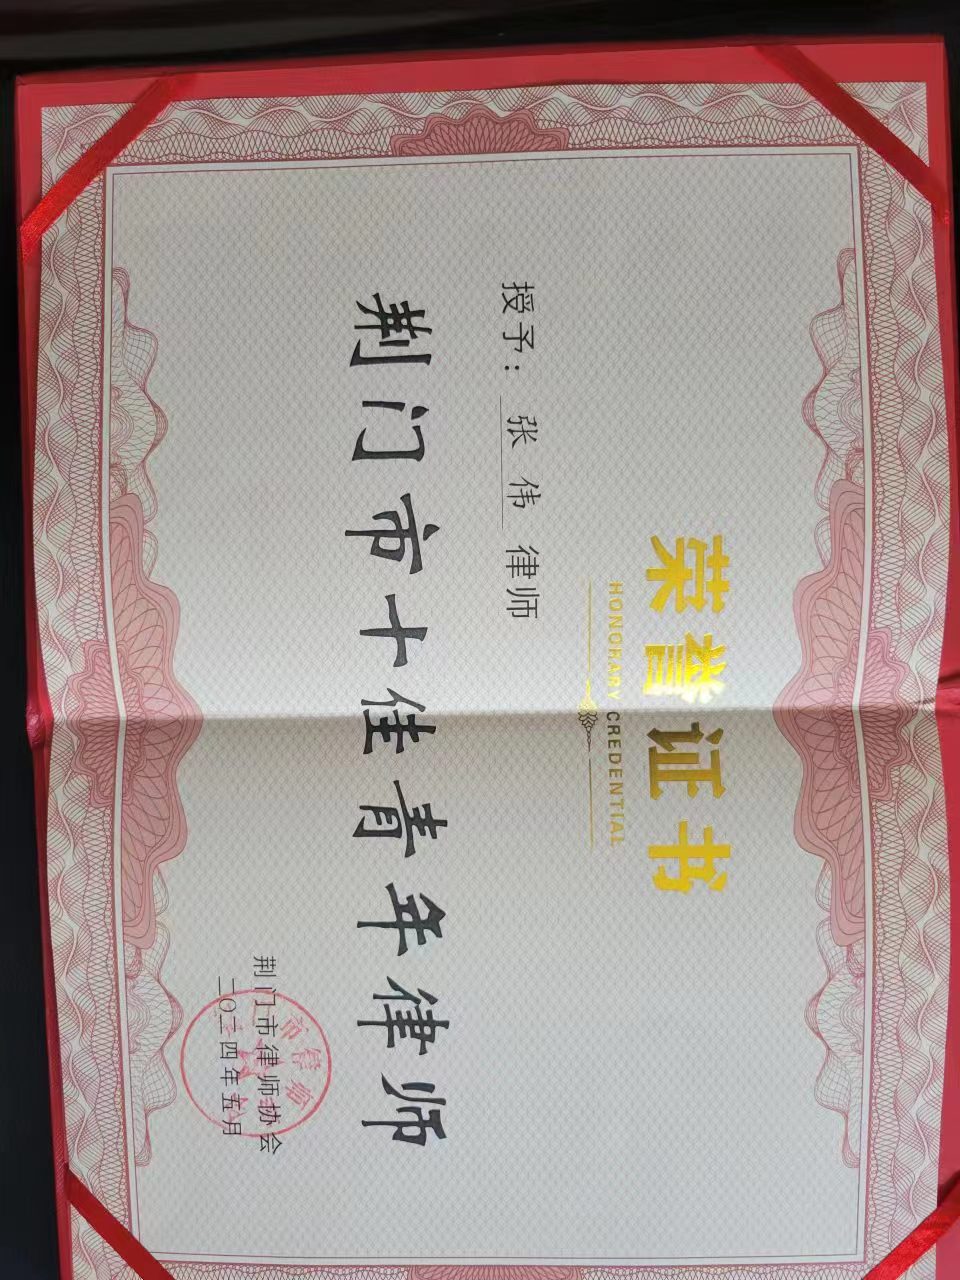 荣誉证书
HONORARY CREDENTIAL
授予：张伟律师
荆门市十佳青年律师
荆门市律师协会
二〇二四年五月
市律师